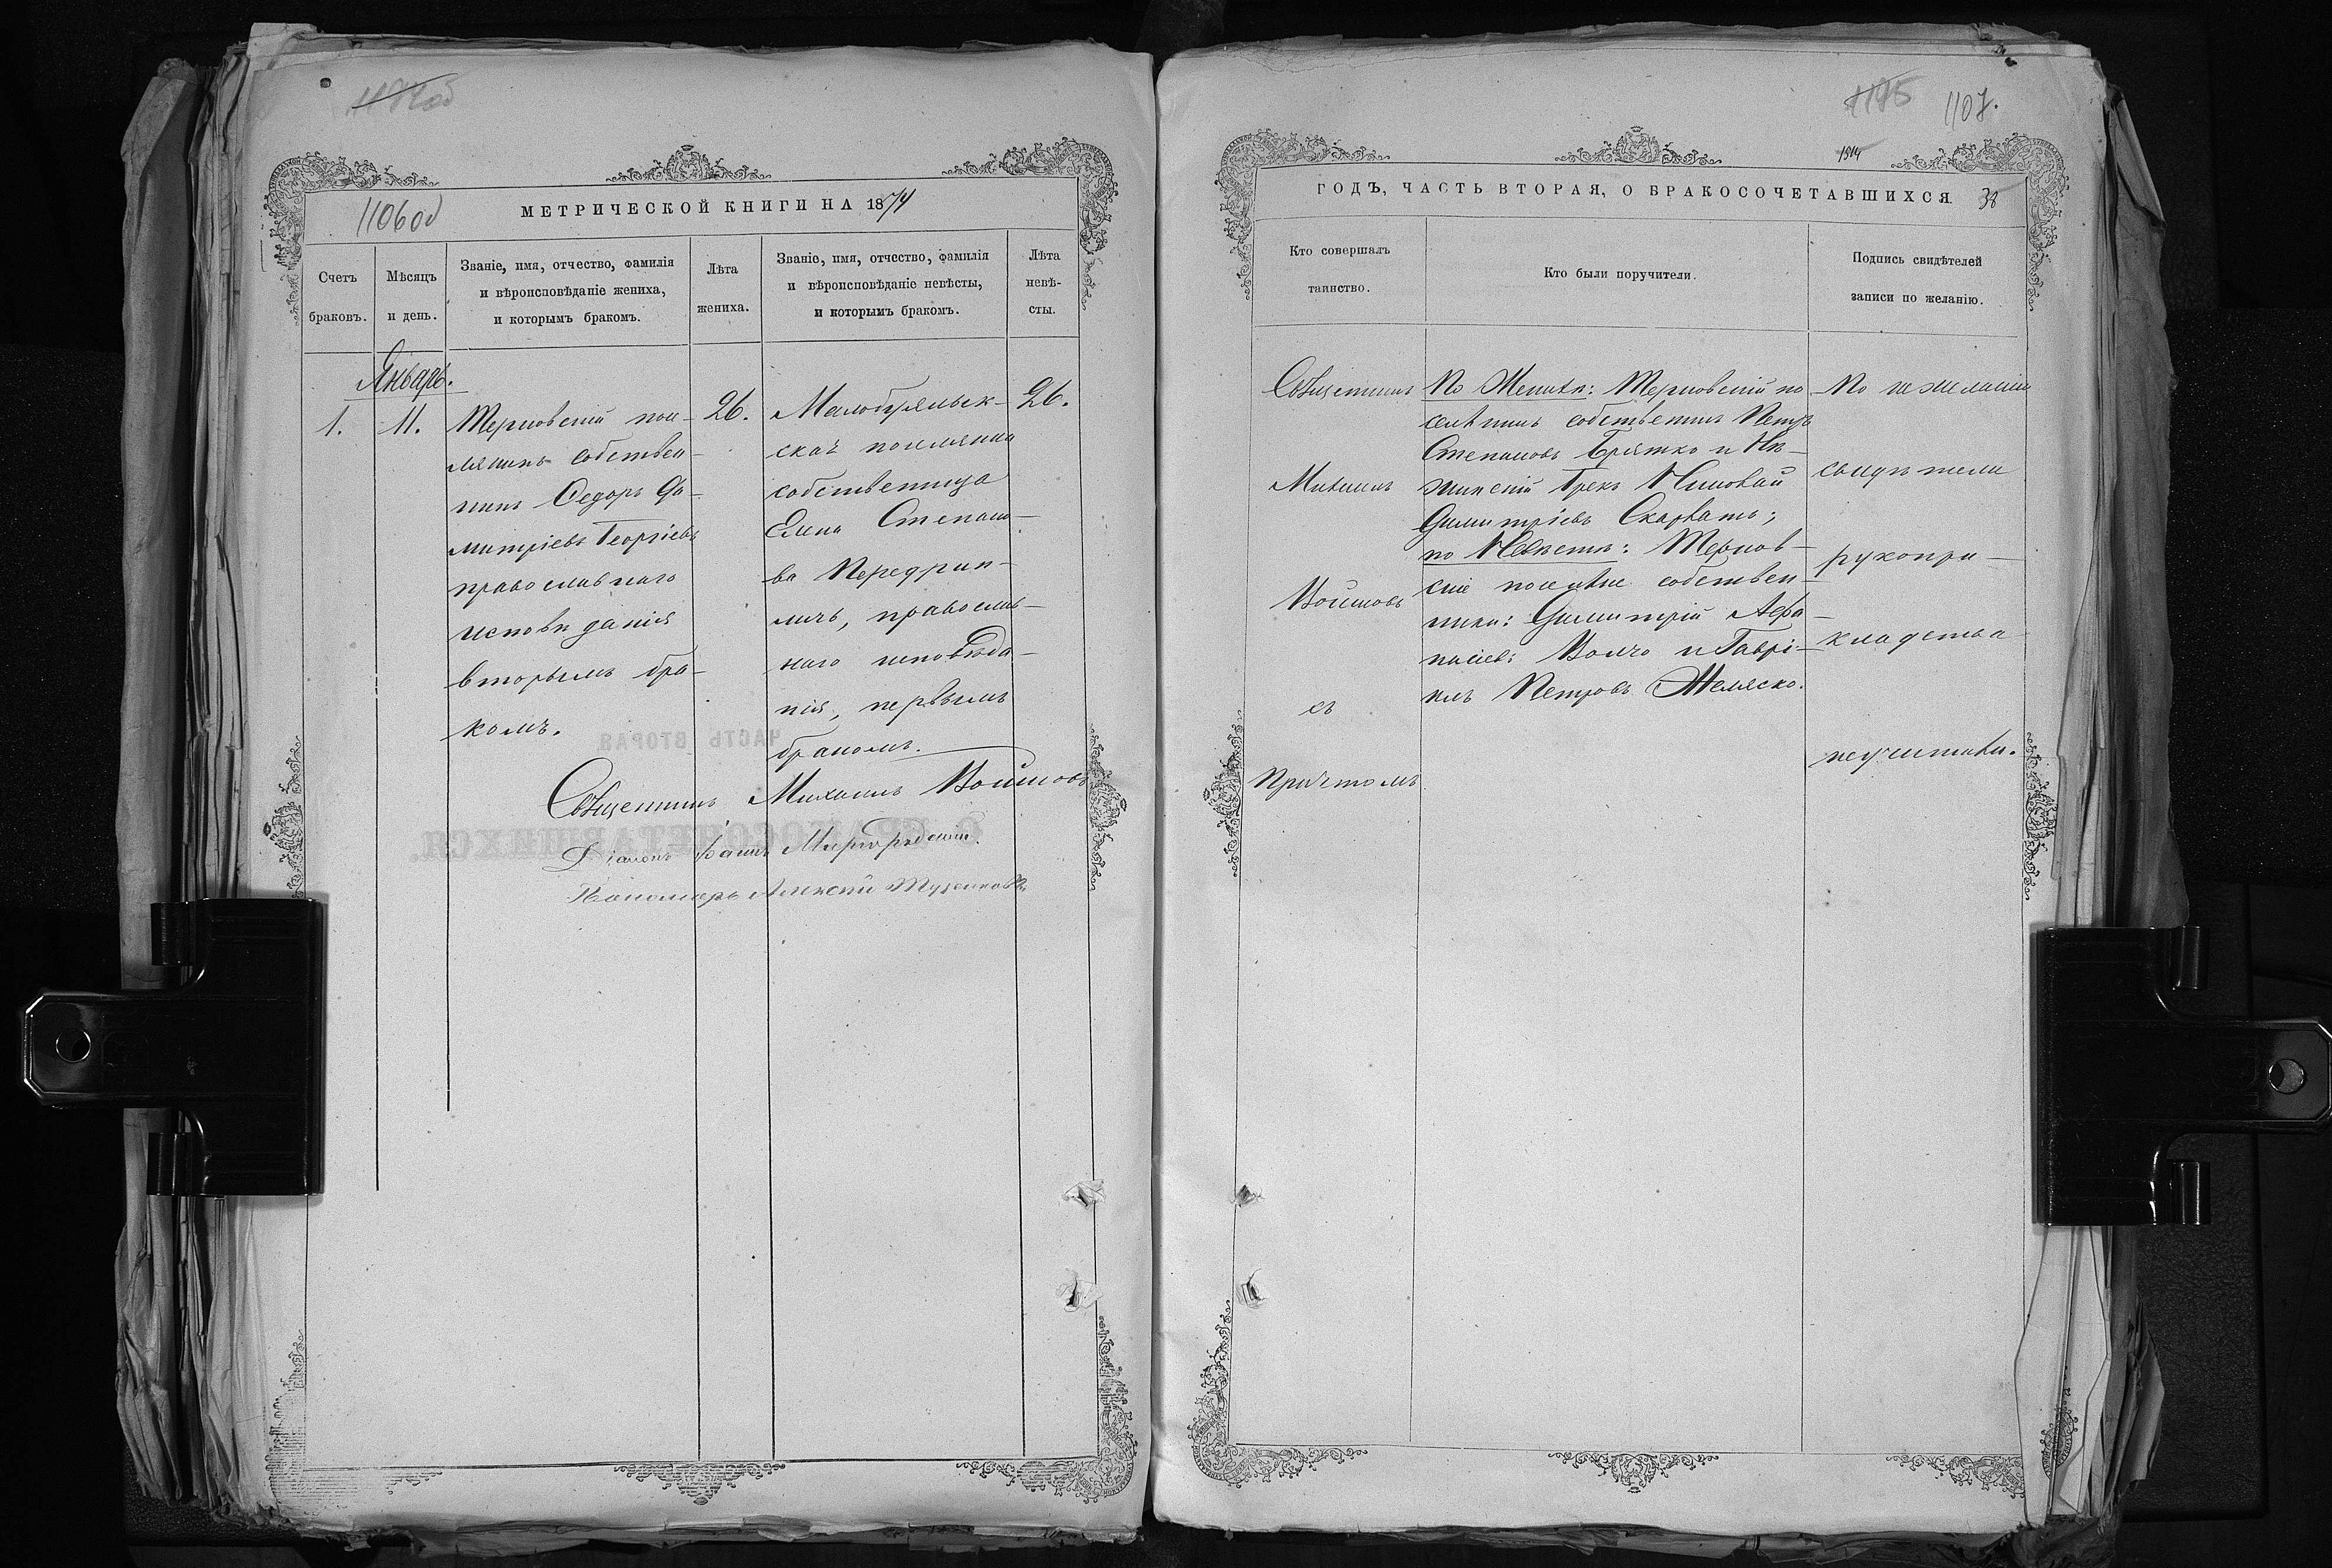 1106 об
МЕТРИЧЕСКОЙ КНИГИ НА 1874
Счетъ
браковъ.
Мѣсяцъ
и день.
Званіе, имя, отчество, фамилія
и вѣроисповѣданіе жениха,
и которымъ бракомъ.
Лѣта
жениха.
Званіе, имя, отчество, фамилія
и вѣроисповѣданіе невѣсты,
и которымъ бракомъ.
Лѣта
невѣ-
сты.
Январь.
1.
11.
Терновскій посе-
лянинъ собствен-
никъ Ѳедоръ Ди-
митріевъ Георгіевъ
православнаго
исповѣданія
вторымъ бра-
комъ.
26.
Малобуялык-
ская поселянка
собственница
Елена Степано-
ва
православ-
наго исповѣда-
нія, первымъ
бракомъ.
26.
Священникъ Михаилъ Войновъ
Діаконъ Іоаннъ Миргородскій.
Пономарь Алексій
1175 1107.
1514
ГОДЪ, ЧАСТЬ ВТОРАЯ, О БРАКОСОЧЕТАВШИХСЯ. 38
Кто совершалъ
таинство.
Кто были поручители.
Подпись свидѣтелей
записи по желанію.
Священникъ
Михаилъ
Войновъ
съ
Причтомъ
По Женихѣ: Терновскій по
селянинъ собственникъ Петръ
Степановъ Братко и Нѣ-
жинскій Грекъ Николай
Димитріевъ
по Невѣстѣ: Тернов-
скіе поселяне собствен-
ники: Димитрій Афа-
насіевъ Волчо и Гаврі-
илъ Петровъ Желяско.
По нежеланію
свидѣтели
рукопри-
кладства
неучинили.